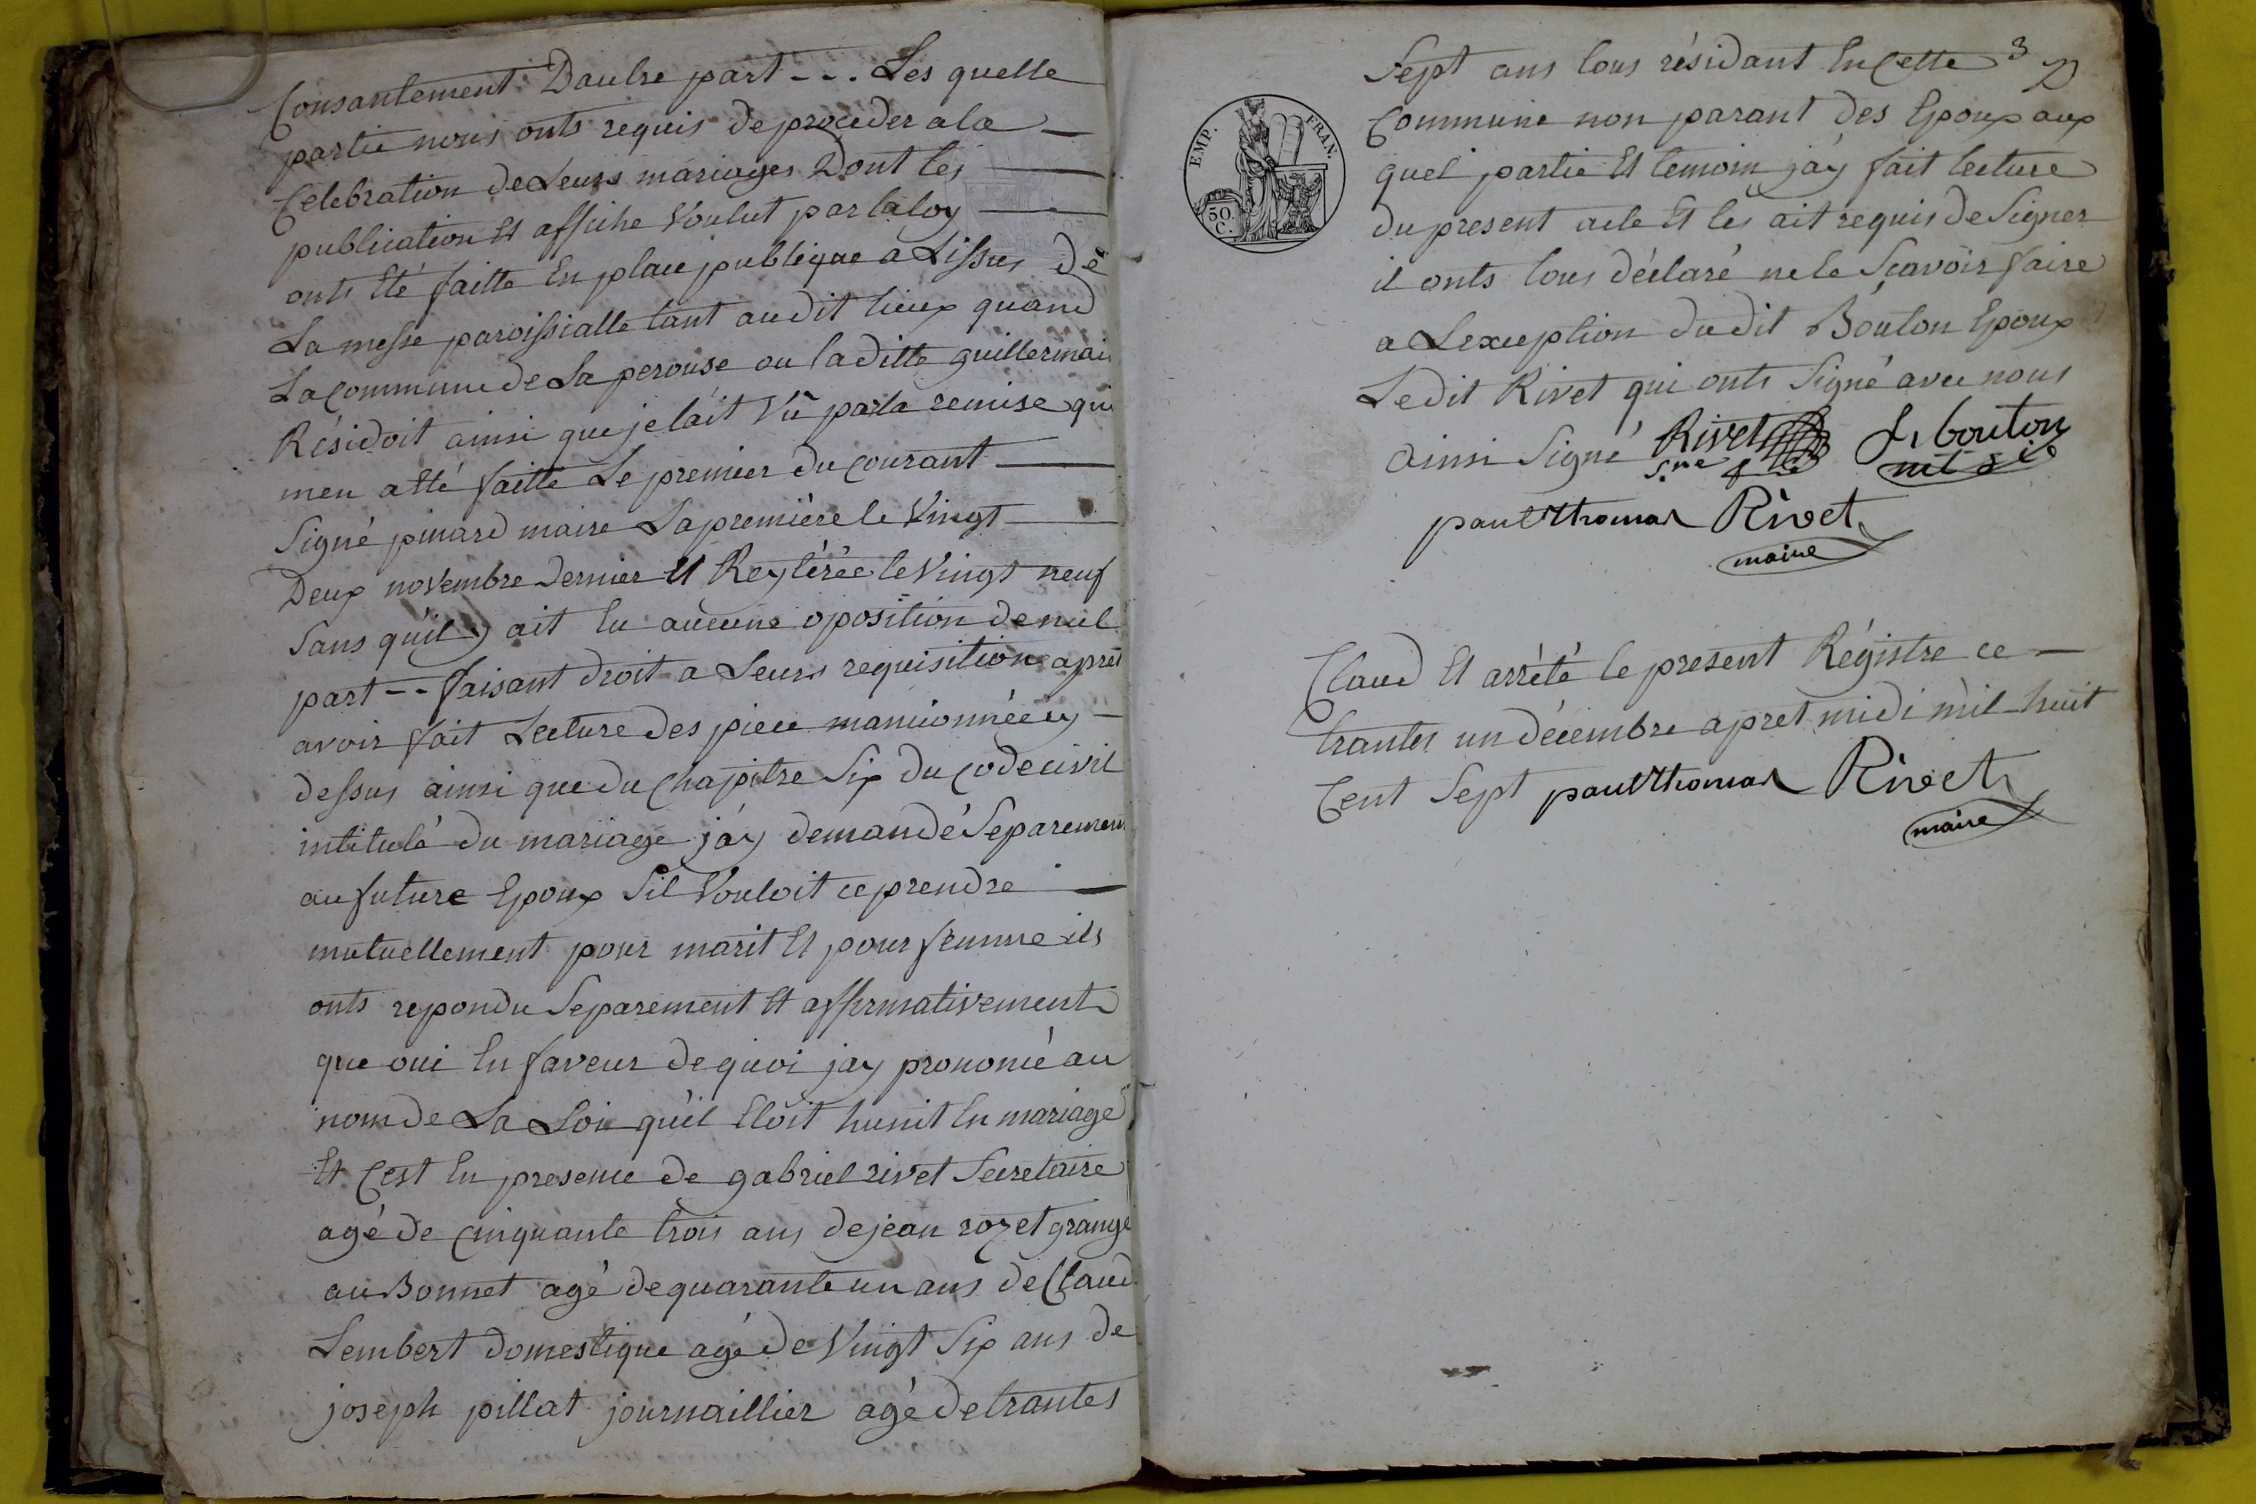 Consantement Dautre part - - . Les quelle
partie nous onts requis de proceder a la
Celebration de Leurs mariages Dont les
publication Et affiche Voulut par la loy
onts Eté faitte En place publique a Lissus de
La messe paroissialle tant au dit lieux quand
La Commune de La perouse ou la ditte guillermai
Résidoit ainsi que je lait Vû pasla remise qui
men a Eté faitte Le premier du courant
Signé pinard maire La première le Vingt
Deux novembre dernier Et Reyterée le Vingt neuf
Sans qu'il y ait Eu aucune oposition de nul
part - - faisant droit a Leurs requisition apret
avoir fait Lecture des piece mancionnée cy
dessus ainsi que du Chapitre Six du Code civil
intitulé du mariage j'ay demandé Separement
au future Epoux Sil Vouloit ce prendre
mutuellement pour marit Et pour femme ils
onts repondu Separement Et affirmativement
que oui En faveur de quoi jay prononcé au
nom de La Loi quil Etoit hunit En mariage
Et C'est En presence de gabriel rivet Secretaire
agé de Cinquante trois ans de jean rozet grange
au Bonnet agé de quarante un ans de Claud
Lembert domestique agé de Vingt Six ans de
joseph pillat journaillier agé de trantes
3
Sept ans tous résidant En Cette
Commune non parant des Epoux aux
quel partie Et temoin j'ay fait lecture
du present acte Et les ait requis de Signer
il onts tous déclaré ne le Scavoir faire
a Lexception du dit Bouton Epoux
Le dit Rivet qui onts Signé avec nous
EMP. FRAN.
50. C.
ainsi Signé Rivet J, bouton
paul thomas Rivet
maire
Claud Et arrêté le present Régistre ce
trantes un décembre apret midi mil huit
Cent Sept paul thomas Rivet
maire